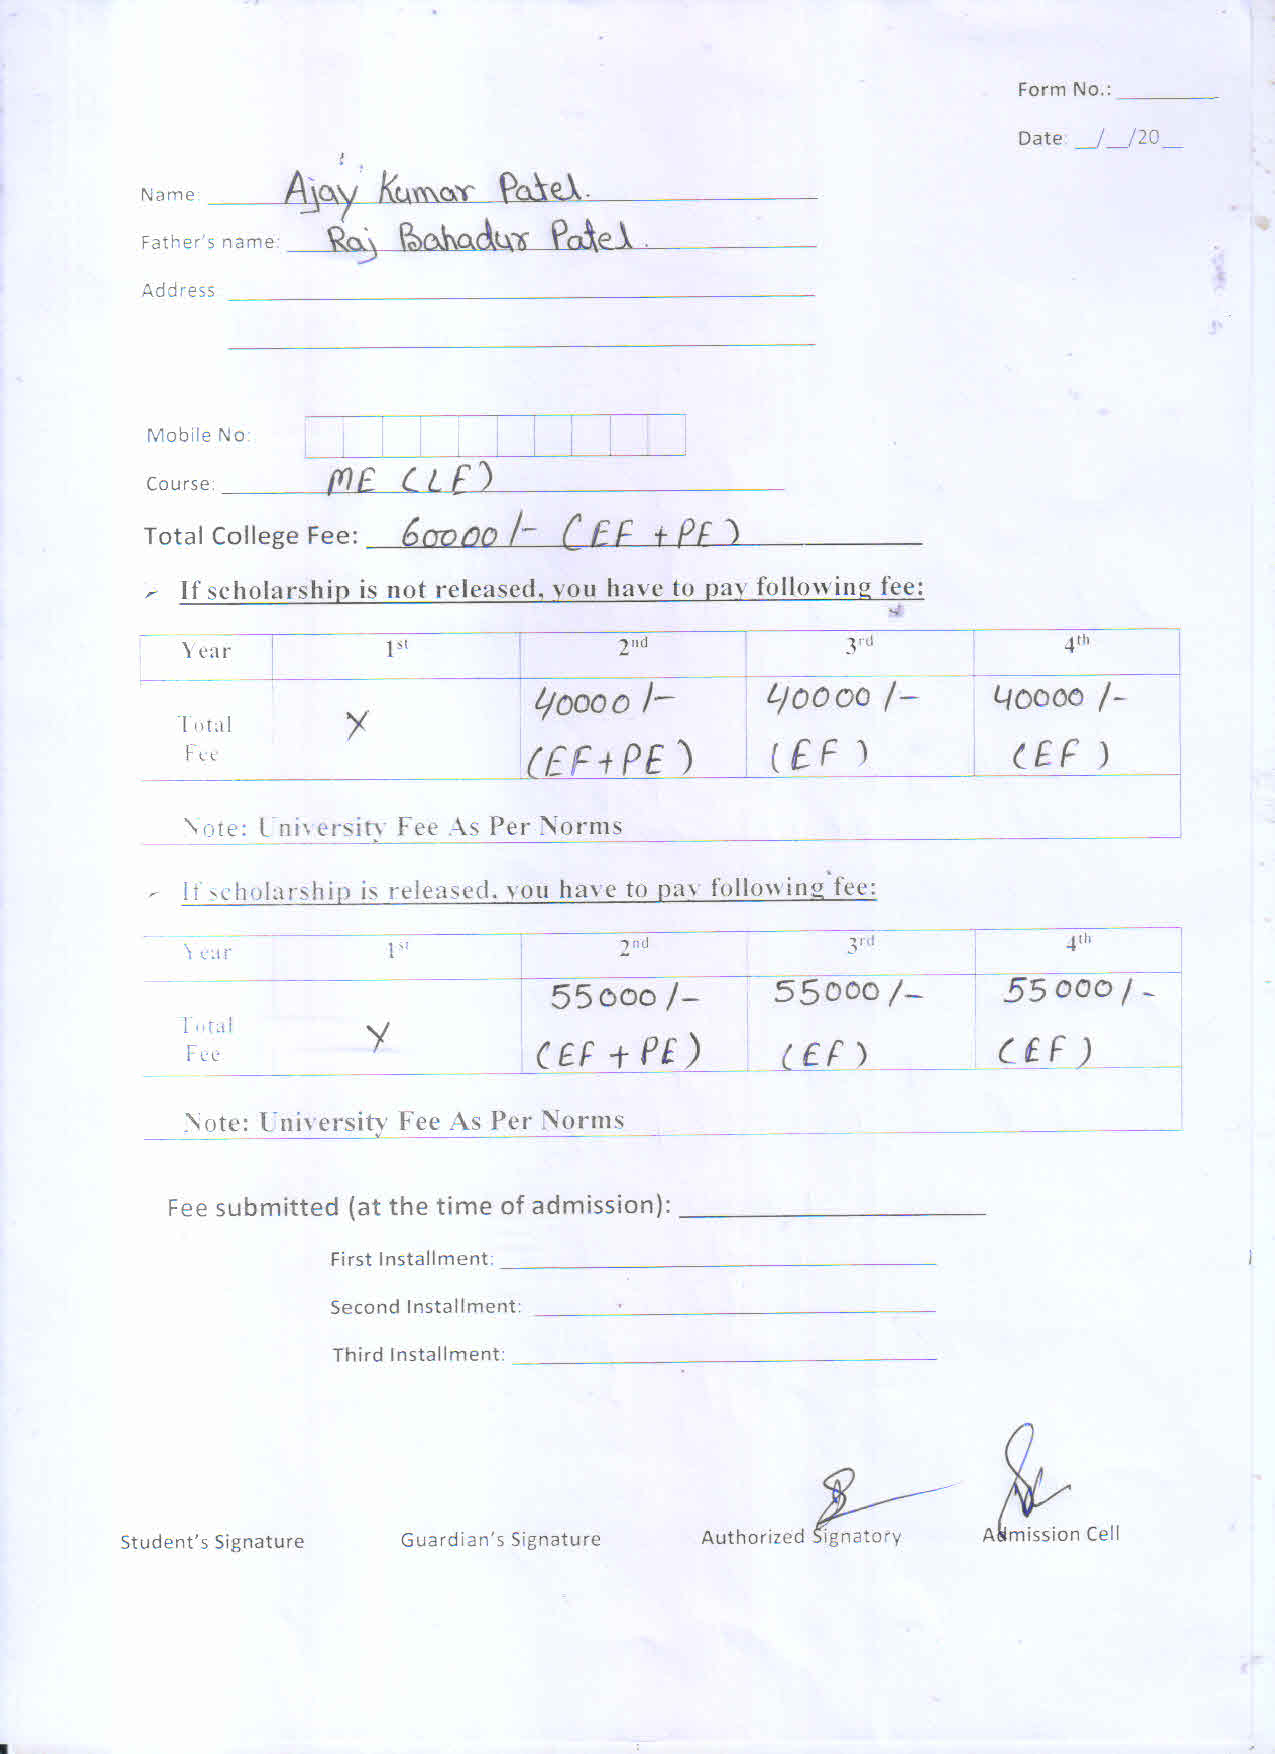 Form No.: ________
Date: __/__/20__
Name: Ajay Kumar Patel.
Father's name: Raj Bahadur Patel.
Address
Mobile No:
Course: ME (LE)
Total College Fee: 60000/- (EF + PE)
If scholarship is not released, you have to pay following fee:
Year 1st 2nd 3rd 4th
Total Fee X 40000/- 40000/- 40000/-
(EF+PE) (EF) (EF)
Note: University Fee As Per Norms
If scholarship is released, you have to pay following fee:
Year 1st 2nd 3rd 4th
Total Fee X 55000/- 55000/- 55000/-
(EF + PE) (EF) (EF)
Note: University Fee As Per Norms
Fee submitted (at the time of admission):
First Installment:
Second Installment:
Third Installment:
Student's Signature Guardian's Signature Authorized Signatory Admission Cell